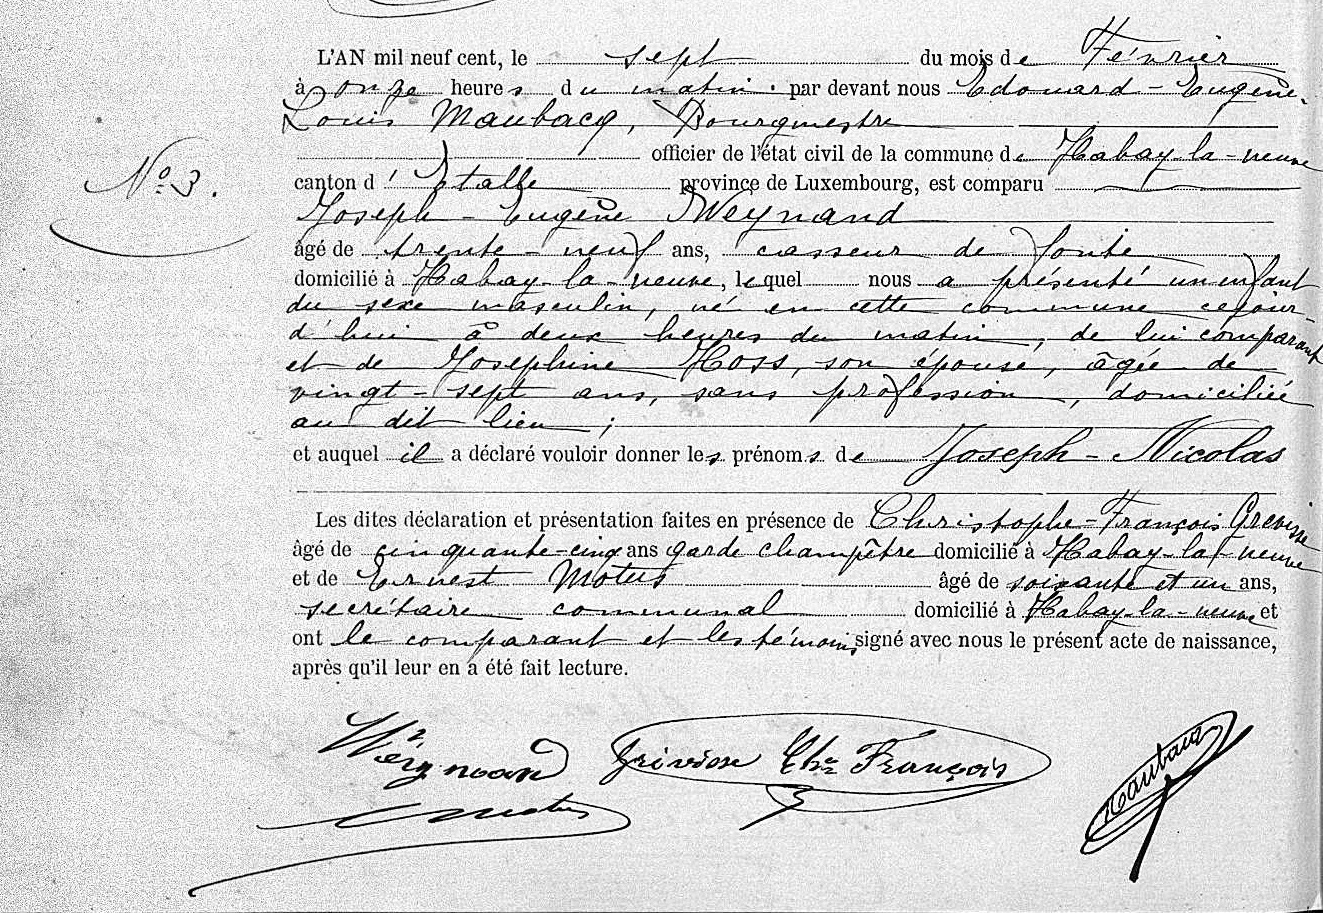 L'AN mil neuf cent, le sept du mois de Février
à onze heures du matin. par devant nous Edouard - Eugène-
Louis Maubacq, Bourgmestre
officier de l'état civil de la commune de Habay-la-neuve
No 3.
canton d' Etalle province de Luxembourg, est comparu
Joseph - Eugène Weynand
âgé de trente-neuf ans, casseur de fonte
domicilié à Habay-la-neuve, lequel nous a présenté un enfant
du sexe masculin, né en cette commune cejour-
d'hui à deux heures du matin, de lui comparant
et de Josephine Hoss, son épouse, âgée de
vingt-sept ans, sans profession, domiciliée
au dit lieu ;
et auquel il a déclaré vouloir donner les prénoms de Joseph-Nicolas
Les dites déclaration et présentation faites en présence de Christophe-François Grevisse
âgé de cinquante-cinq ans garde champêtre domicilié à Habay-la-neuve
et de Ernest Motus âgé de soixante et un ans,
secrétaire communal domicilié à Habay-la-neuve et
ont le comparant et les témoins signé avec nous le présent acte de naissance,
après qu'il leur en a été fait lecture.
Weynand Grivisse Chr François
Maubacq
Motus